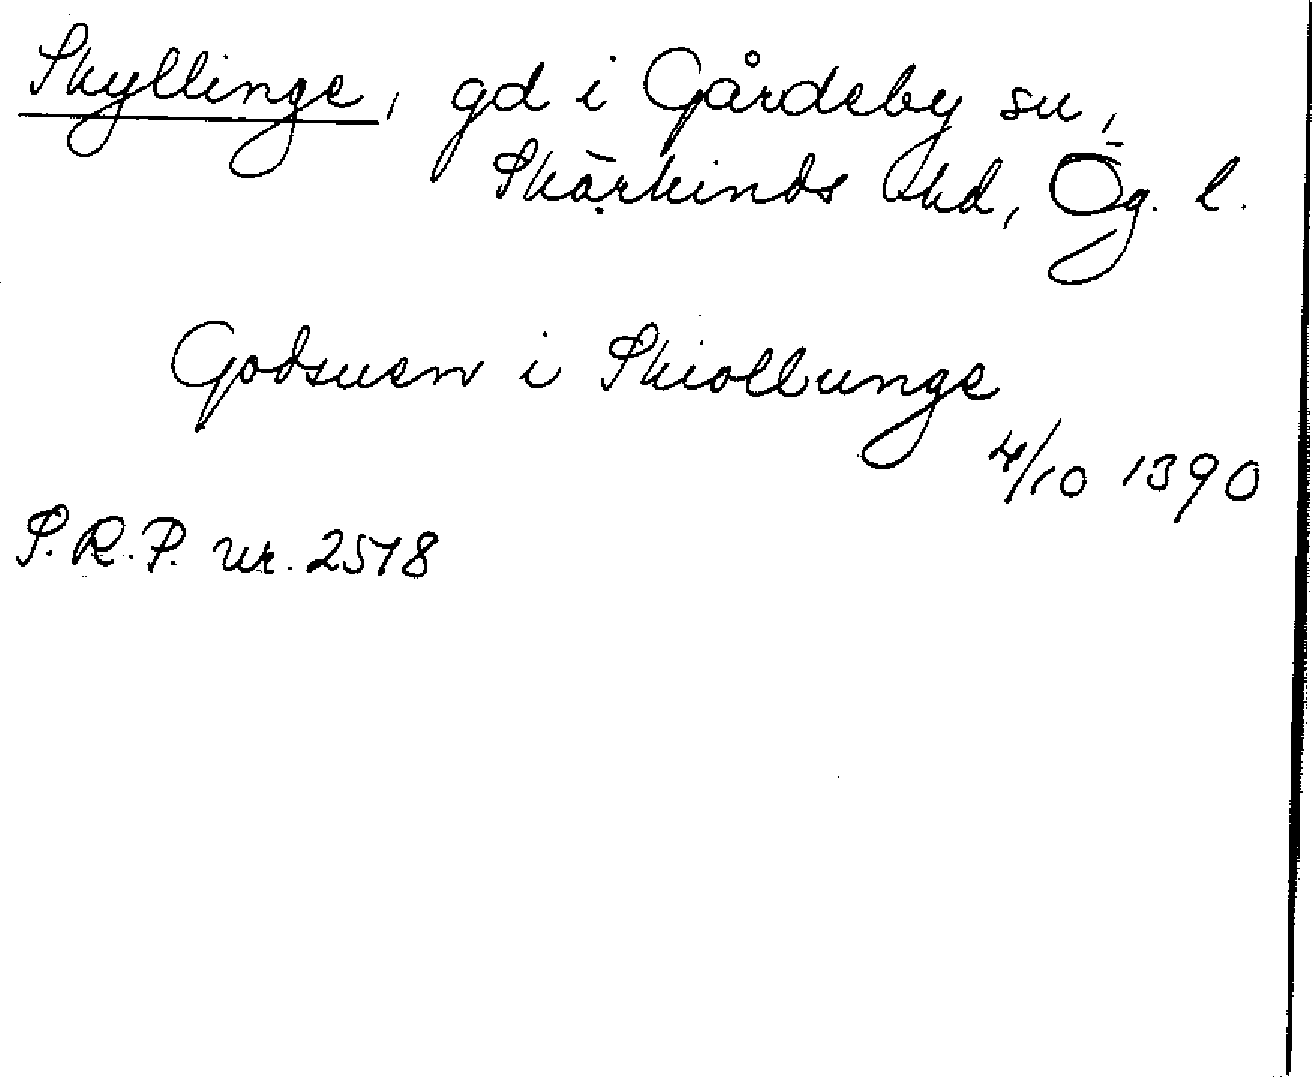 Skyllinge, gd i Gårdeby sn,
Skärkinds hd, Ög. l.
Godsuen i Skiollunge
4/10 1390
S.R.P. nr. 2518